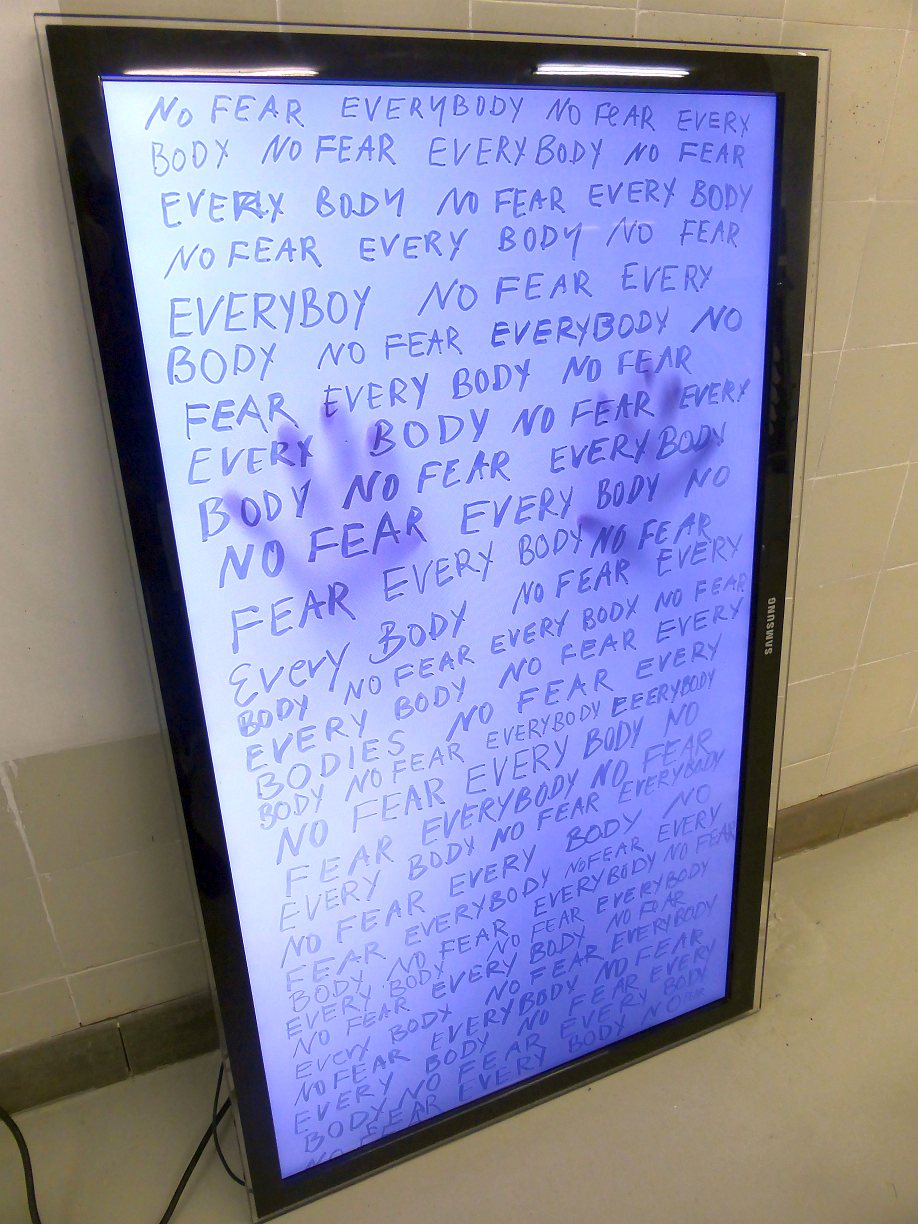 NO FEAR EVERYBODY NO FEAR EVERY
BODY NO FEAR EVERYBODY NO FEAR
EVERLY BODY NO FEAR EVERY BODY
NO FEAR EVERY BODY NO FEAR
EVERYBOY NO FEAR EVERY
BODY NO FEAR EVERYBODY NO
FEAR EVERY BODY NO FEAR
EVERY BODY NO FEAR EVERY
BODY NO FEAR EVERYBODY
NO FEAR EVERY BODY NO
FEAR EVERY BODY NO FEAR
EVERY BODY NO FEAR EVERY
BODY NO FEAR EVERY BODY NO FEAR
EVERY BODY NO FEAR EVERY
BODIES NO FEAR EVERY
BODY NO FEAR EVERYBODY EEERYBODY
NO FEAR EVERY BODY NO
FEAR EVERYBODY NO FEAR
EVERY BODY NO FEAR EVERYBODY
NO FEAR EVERY BODY NO
FEAR EVERYBODY NO FEAR EVERY
BODY NO FEAR EVERYBODY NO FEAR
EVERY BODY NO FEAR EVERYBODY
NO FEAR EVERY BODY NO FEAR
EVERY BODY NO FEAR EVERYBODY
NO FEAR EVERYBODY NO FEAR
EVERY BODY NO FEAR EVERY
BODY NO FEAR EVERY BODY
NO FEAR EVERY BODY NO FEAR
SAMSUNG